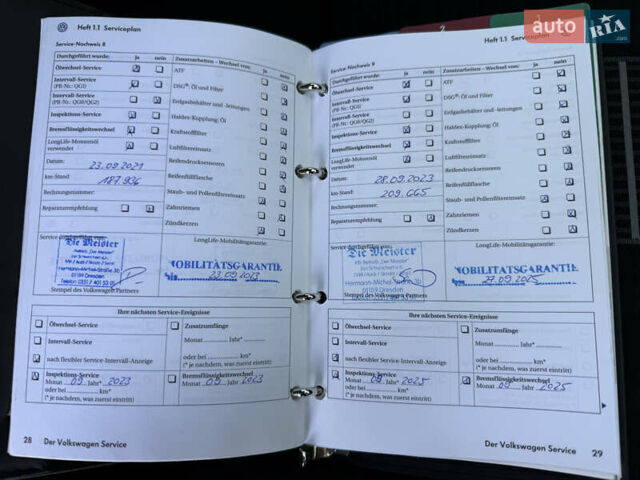 Heft 1.1 Serviceplan
Service-Nachweis 8
Durchgeführt wurde: ja nein
Zusatzarbeiten – Wechsel von: ja nein
Ölwechsel-Service
ATF
Intervall-Service
(PR-Nr.: QG1)
DSG®: Öl und Filter
Intervall-Service
(PR-Nr.: QG0/QG2)
Erdgasbehälter und -leitungen
Inspektions-Service
Haldex-Kupplung: Öl
Bremsflüssigkeitswechsel
Kraftstofffilter
LongLife-Motorenöl
verwendet
Luftfiltereinsatz
Datum: 23.09.2021
Reifendrucksensoren
km-Stand: 187.936
Reifenfüllflasche
Rechnungsnummer:
Staub- und Pollenfiltereinsatz
Reparaturempfehlung
Zahnriemen
Zündkerzen
Service durchgeführt von:
LongLife-Mobilitätsgarantie:
Die Meister
Hermann-Michel-Straße
01189 Dresden
MOBILITÄTSGARANTIE
23.09.2023
Stempel des Volkswagen Partners
Ihre nächsten Service-Ereignisse
Ölwechsel-Service
Zusatzumfänge
Intervall-Service
Monat Jahr*
nach flexibler Service-Intervall-Anzeige
oder bei km*
(* je nachdem, was zuerst eintritt)
Inspektions-Service
Monat 09 Jahr* 2023
Bremsflüssigkeitswechsel
Monat 09 Jahr 2023
oder bei km*
(* je nachdem, was zuerst eintritt)
28 Der Volkswagen Service
auto RIA
.com
2
Heft 1.1 Serviceplan
Service-Nachweis 9
Durchgeführt wurde: ja nein
Zusatzarbeiten – Wechsel von: ja nein
Ölwechsel-Service
ATF
Intervall-Service
(PR-Nr.: QG1)
DSG®: Öl und Filter
Intervall-Service
(PR-Nr.: QG0/QG2)
Erdgasbehälter und -leitungen
Inspektions-Service
Haldex-Kupplung: Öl
Bremsflüssigkeitswechsel
Kraftstofffilter
LongLife-Motorenöl
verwendet
Luftfiltereinsatz
Datum: 28.09.2023
Reifendrucksensoren
km-Stand: 209.665
Reifenfüllflasche
Rechnungsnummer:
Staub- und Pollenfiltereinsatz
Reparaturempfehlung
Zahnriemen
Zündkerzen
Service durchgeführt von:
LongLife-Mobilitätsgarantie:
Die Meister
01189 Dresden
MOBILITÄTSGARANTIE
Stempel des Volkswagen Partners
Ihre nächsten Service-Ereignisse
Ölwechsel-Service
Zusatzumfänge
Intervall-Service
Monat Jahr*
nach flexibler Service-Intervall-Anzeige
oder bei km*
(* je nachdem, was zuerst eintritt)
Inspektions-Service
Monat 09 Jahr* 2025
Bremsflüssigkeitswechsel
Monat 09 Jahr 2025
oder bei km*
(* je nachdem, was zuerst eintritt)
Der Volkswagen Service 29